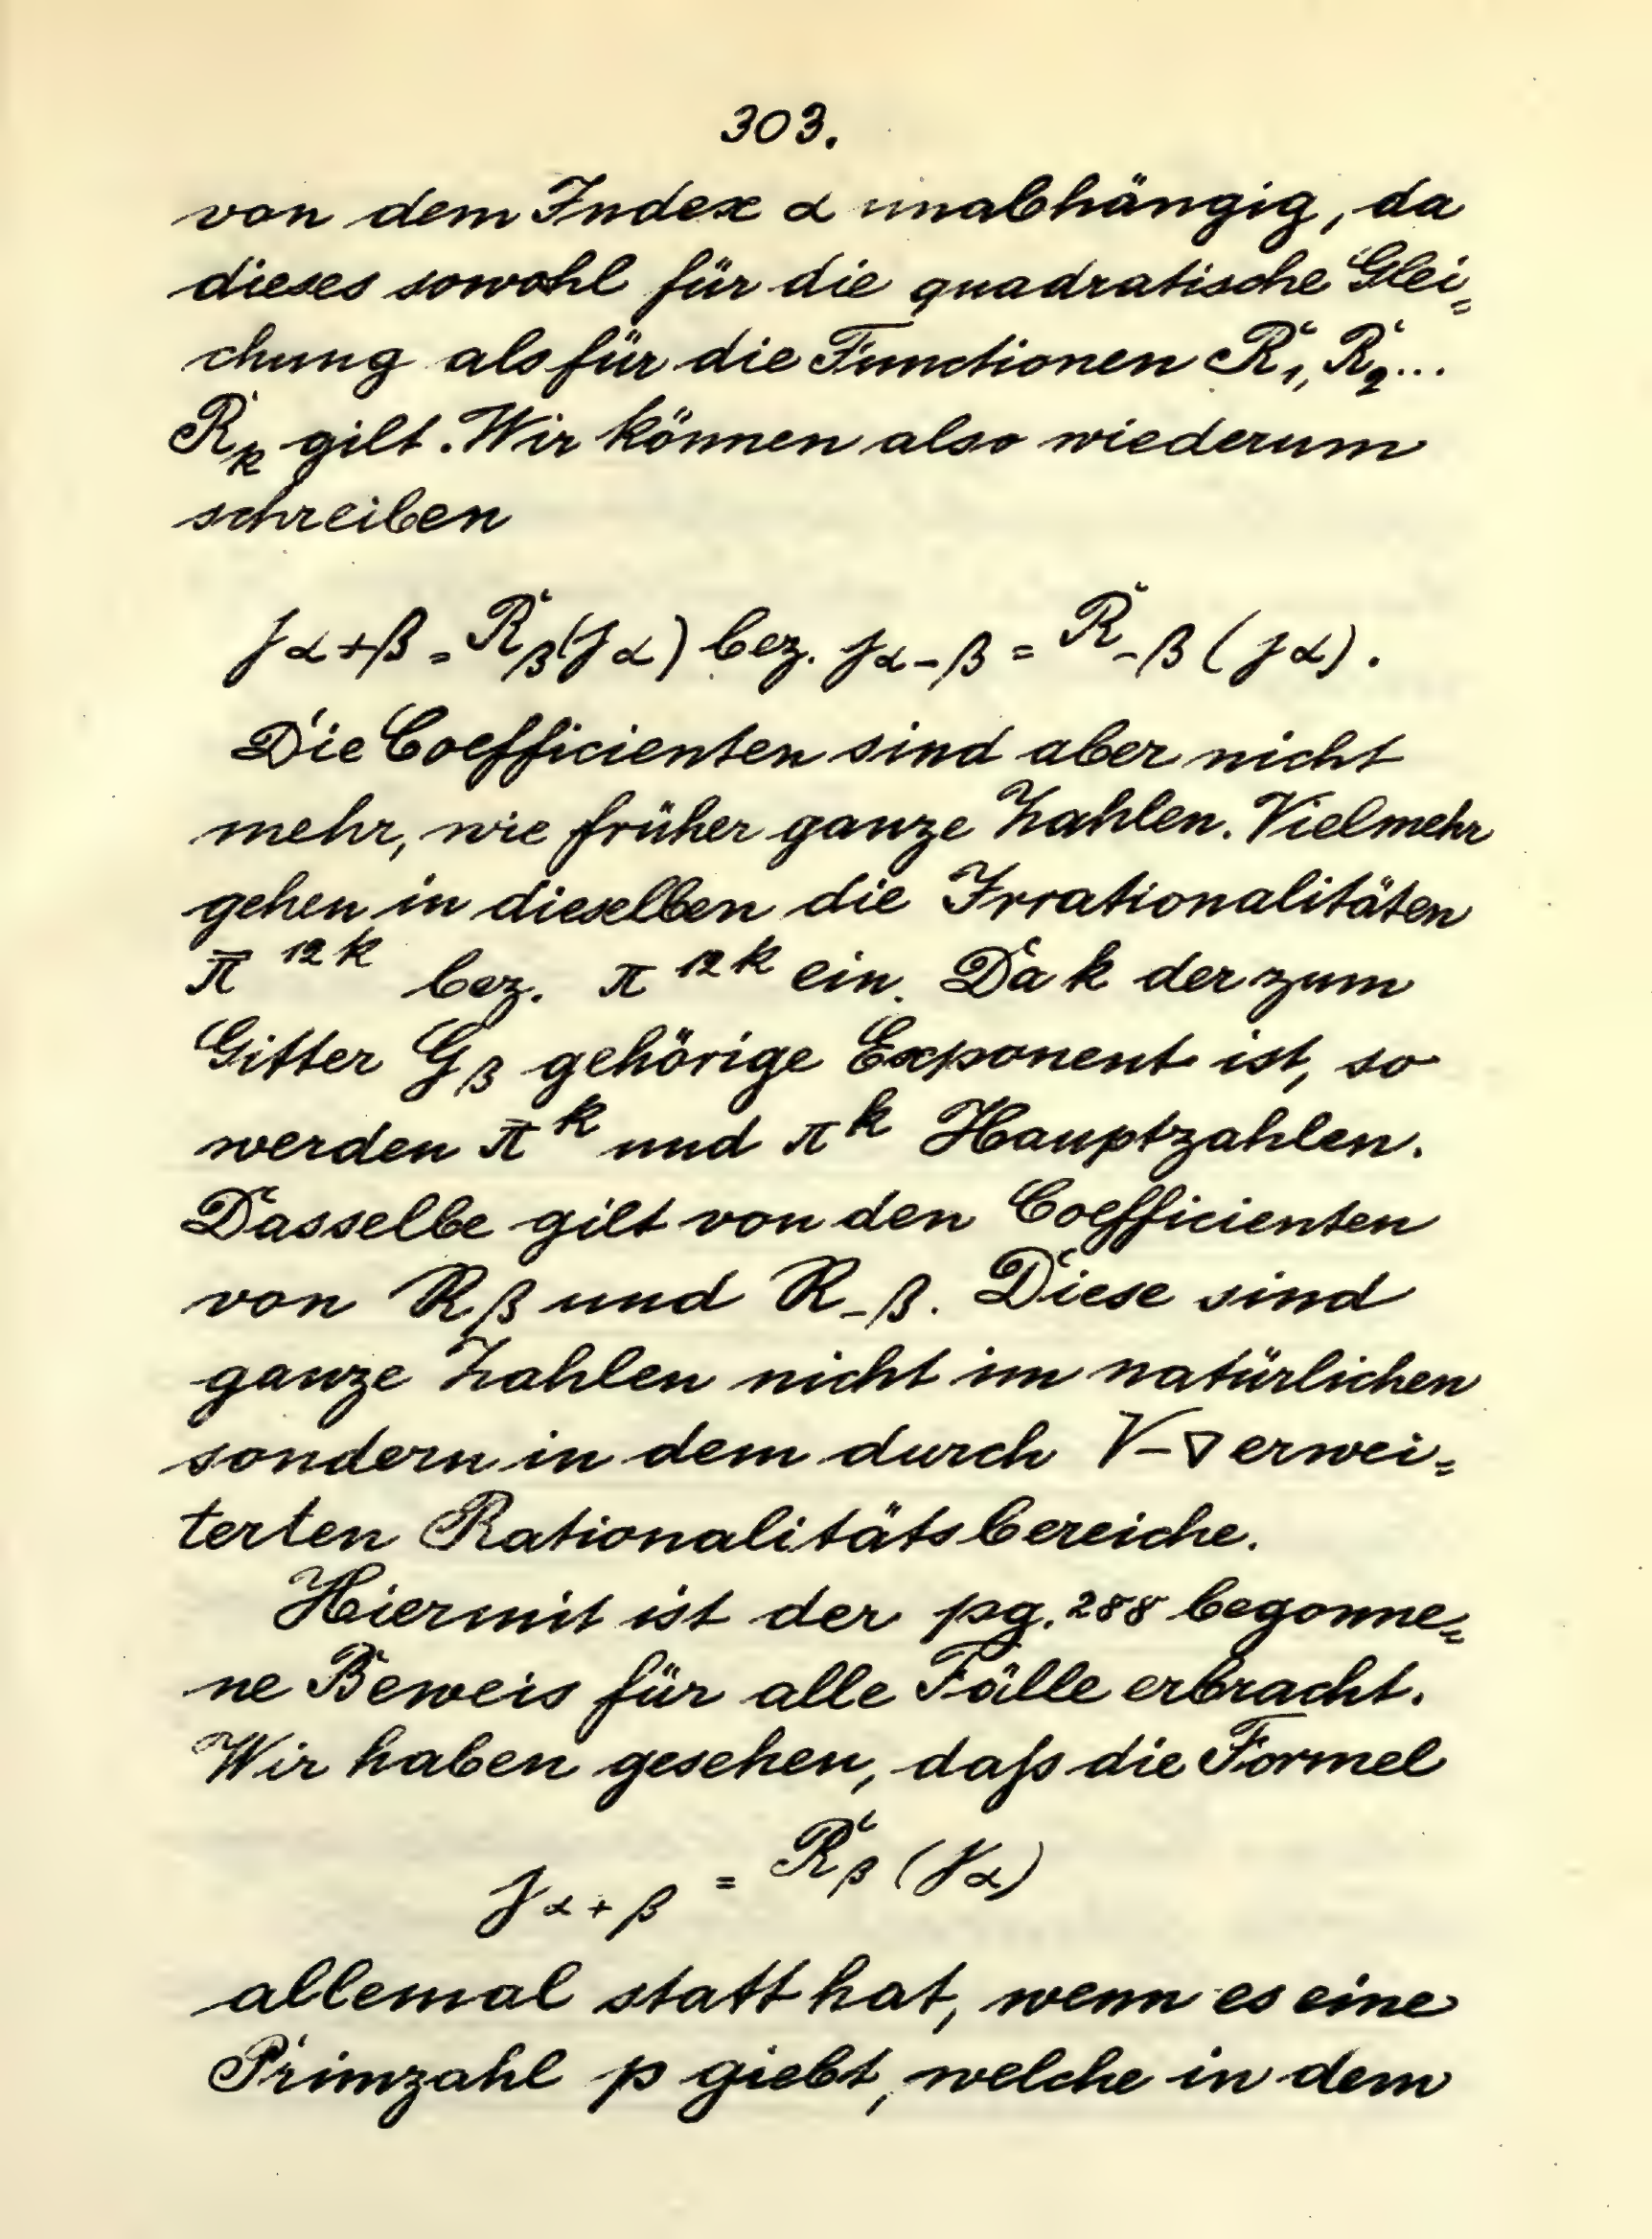 303.
von dem Index α unabhängig, da
dieses sowohl für die quadratische Glei-
chung als für die Functionen R₁, R₂...
R_k gilt. Wir können also wiederum
schreiben
j_{α+β} = R_β(j_α) bez. j_{α-β} = R_{-β}(j_α).
Die Coefficienten sind aber nicht
mehr, wie früher ganze Zahlen. Vielmehr
gehen in dieselben die Irrationalitäten
π̄^{12k} bez. π^{12k} ein. Da k der zum
Gitter G_β gehörige Exponent ist, so
werden π̄^k und π^k Hauptzahlen.
Dasselbe gilt von den Coefficienten
von R_β und R_{-β}. Diese sind
ganze Zahlen nicht im natürlichen
sondern in dem durch √-∇ erwei-
terten Rationalitätsbereiche.
Hiermit ist der pg. 288 begonne-
ne Beweis für alle Fälle erbracht.
Wir haben gesehen, daß die Formel
j_{α+β} = R_β(j_α)
allemal statt hat, wenn es eine
Primzahl p giebt, welche in dem